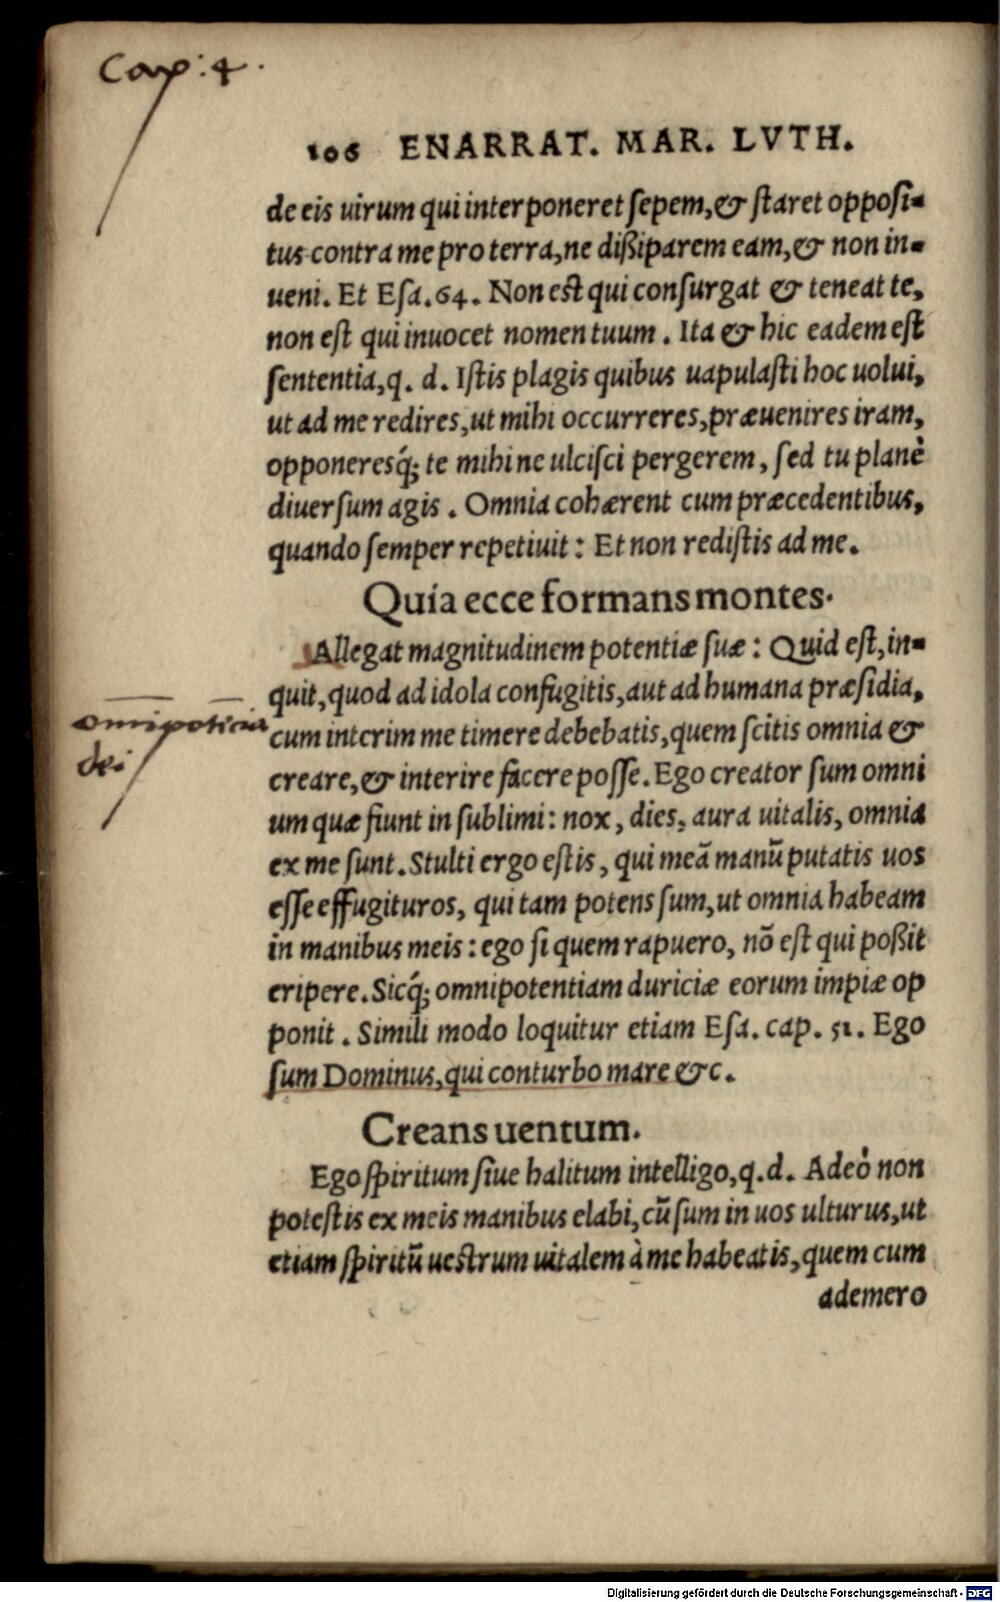 Cap: 4.
106 ENARRAT. MAR. LVTH.
de eis uirum qui interponeret sepem, & staret opposi-
tus contra me pro terra, ne dißiparem eam, & non in-
ueni. Et Esa. 64. Non est qui consurgat & teneat te,
non est qui inuocet nomen tuum. Ita & hic eadem est
sententia, q. d. Istis plagis quibus uapulasti hoc uolui,
ut ad me redires, ut mihi occurreres, præuenires iram,
opponeresq́; te mihi ne ulcisci pergerem, sed tu planè
diuersum agis. Omnia cohærent cum præcedentibus,
quando semper repetiuit: Et non redistis ad me.
Quia ecce formans montes.
Allegat magnitudinem potentiæ suæ: Quid est, in-
quit, quod ad idola confugitis, aut ad humana præsidia,
omnipotencia
cum interim me timere debebatis, quem scitis omnia &
dei
creare, & interire facere posse. Ego creator sum omni
um quæ fiunt in sublimi: nox, dies, aura uitalis, omnia
ex me sunt. Stulti ergo estis, qui meã manũ putatis uos
esse effugituros, qui tam potens sum, ut omnia habeam
in manibus meis: ego si quem rapuero, nõ est qui poßit
eripere. Sicq́; omnipotentiam duriciæ eorum impiæ op
ponit. Simili modo loquitur etiam Esa. cap. 51. Ego
sum Dominus, qui conturbo mare &c.
Creans uentum.
Ego spiritum siue halitum intelligo, q. d. Adeò non
potestis ex meis manibus elabi, cũ sum in uos ulturus, ut
etiam spiritũ uestrum uitalem à me habeatis, quem cum
ademero
Digitalisierung gefördert durch die Deutsche Forschungsgemeinschaft - DFG